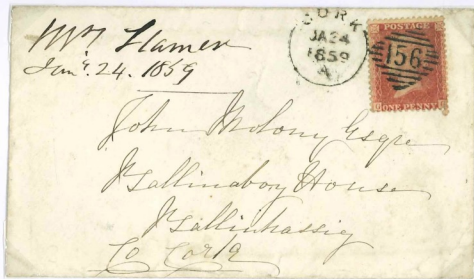 Mrs Hamer
Jany. 24. 1859
CORK
JA 24
1859
A
POSTAGE
156
ONE PENNY
John Molony Esqre
Ballinaboy House
Ballinhassig
Co Cork